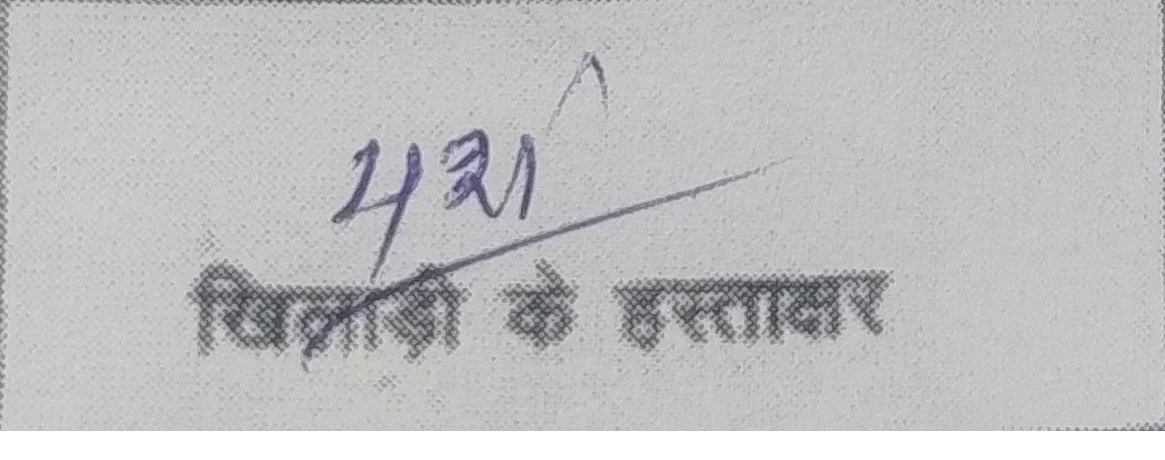 यश
खिलाड़ी के हस्ताक्षर